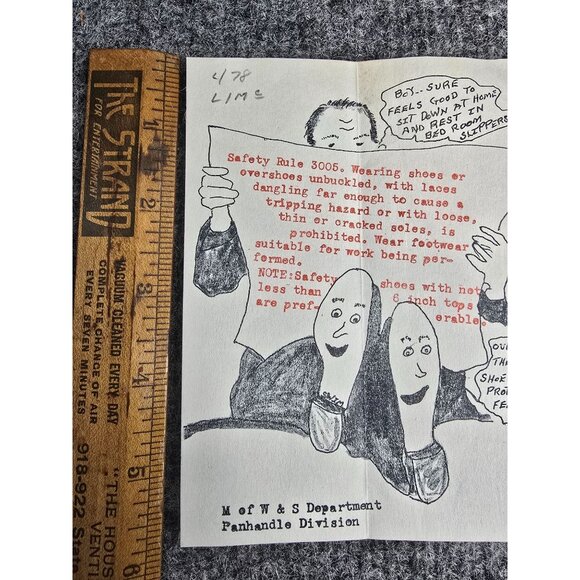 4/78
LIMC
BOY.. SURE
FEELS GOOD TO
SIT DOWN AT HOME
AND REST IN
BED ROOM
SLIPPERS
Safety Rule 3005. Wearing shoes or
overshoes unbuckled, with laces
dangling far enough to cause a
tripping hazard or with loose,
thin or cracked soles, is
prohibited. Wear footwear
suitable for work being per-
formed.
NOTE:Safety shoes with not
less than 6 inch tops
are pref- erable.
OU
TH
SHOE
PRO
FE
M of W & S Department
Panhandle Division
THE STRAND
FOR ENTERTAINMENT
VACUUM CLEANED EVERY DAY
COMPLETE CHANGE OF AIR
EVERY SEVEN MINUTES
918-922
"THE HOUS
VENTI
1
2
3
4
5